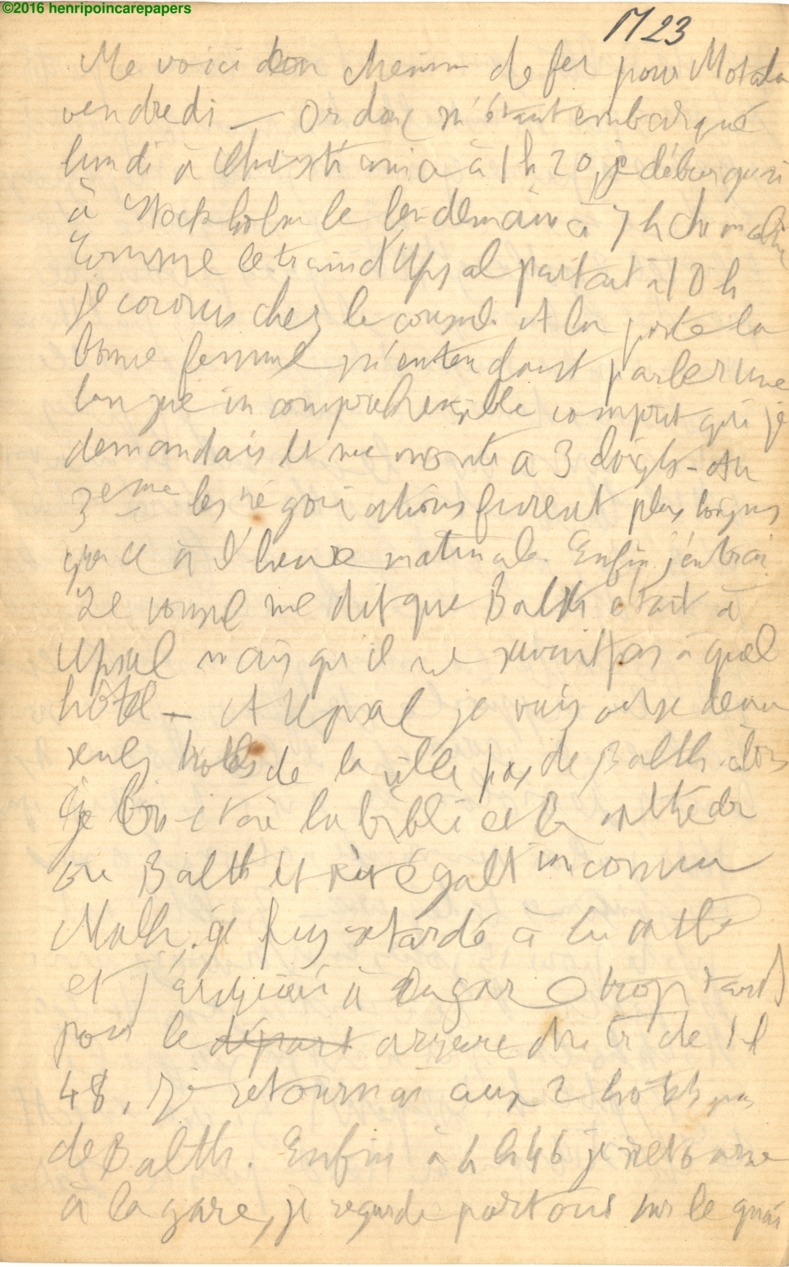 ©2016 henripoincarepapers
M 23
Me voici en chemin de fer pour Motala
vendredi — Or donc m'étant embarqué
lundi à Christiania à 1h 20, je débarquai
à Stockholm le lendemain à 7 h du matin
Comme le train d'Upsal partait à 10 h
je courus chez le consul. A la porte la
bonne femme m'entendant parler une
langue incompréhensible comprit qui je
demandais et me montra 3 doigts — Au
3eme les négociations furent plus longues
grace à l'heure matinale. Enfin j'entrai
Le consul me dit que Balth était à
Upsal mais qu'il ne savait pas à quel
hôtel — A Upsal je vais aux deux
seuls hotels de la ville pas de Balth. alors
je la bibli et la cathédr
ou Balth et égalt inconnu
Malh. je fus retardé à la cath
et j'arrivai à la gare trop tard
pour le départ arrivée du tr de 1 h
48, je retournai aux 2 hotels pas
de Balth. Enfin à 4 h 46 je retourne
à la gare, je regarde partout sur le quai